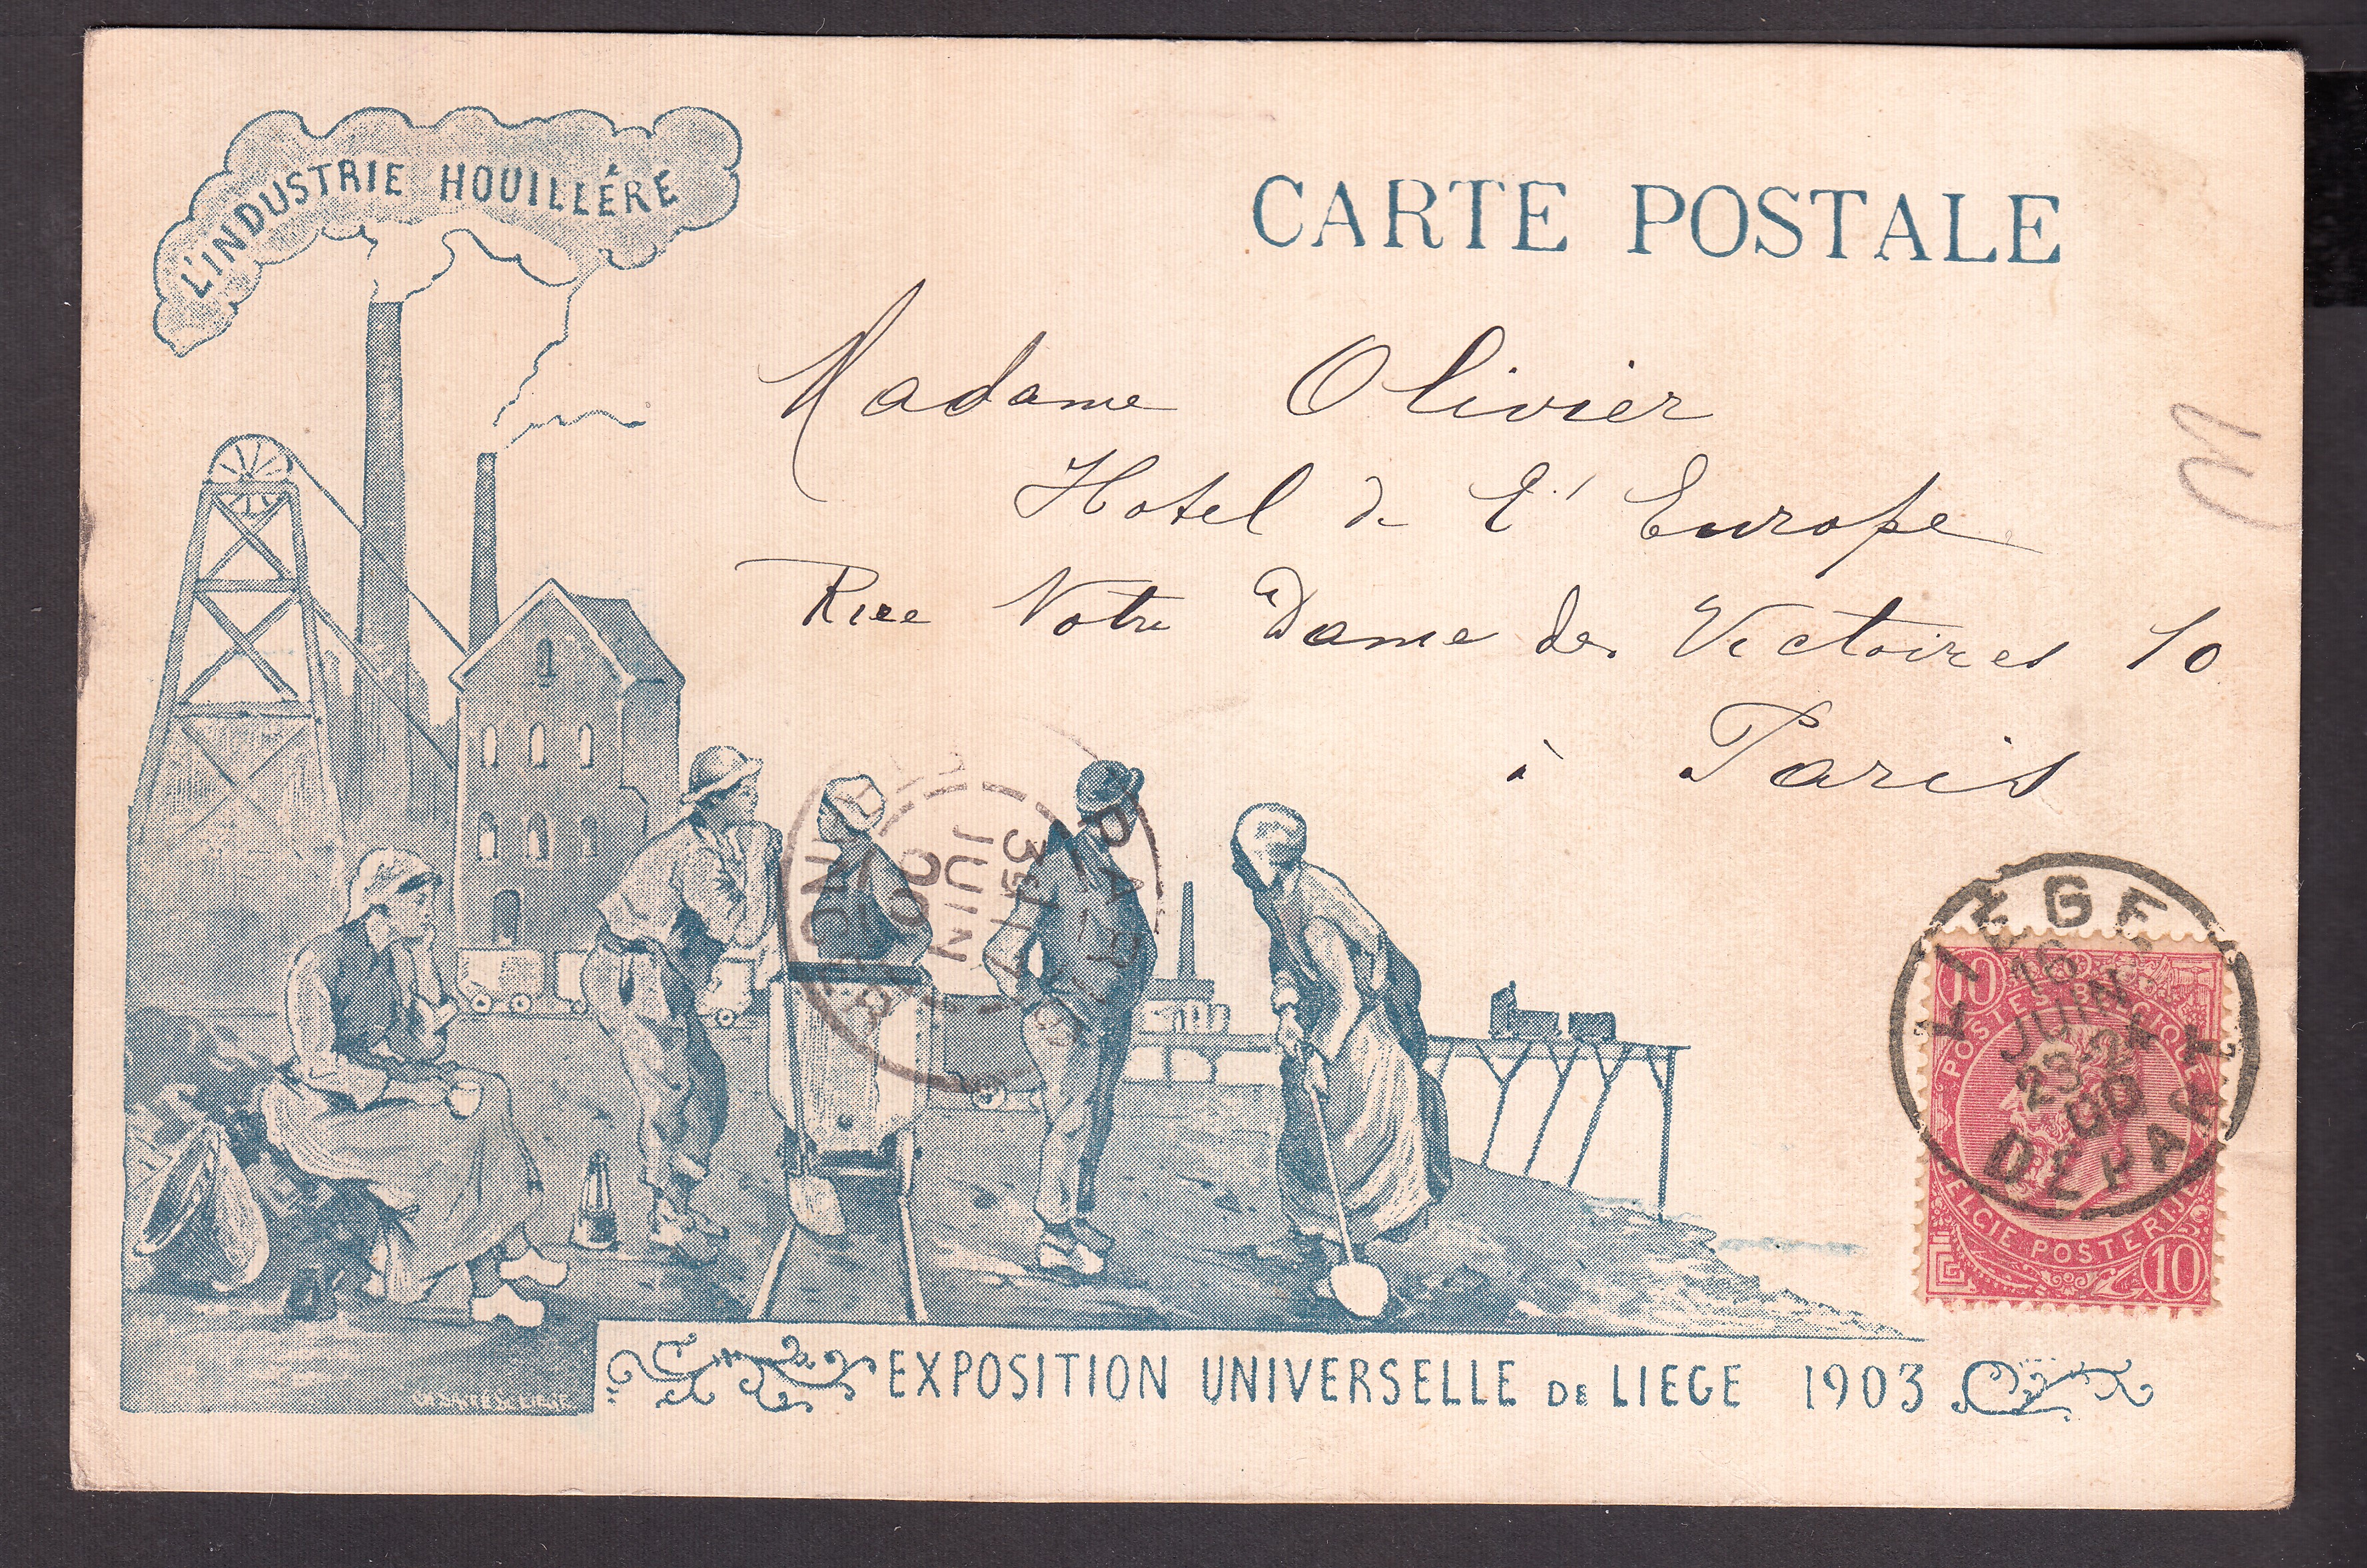 L'INDUSTRIE HOUILLÉRE
CARTE POSTALE
Madame Olivier
Hotel de l'Europe
Rue Notre Dame des Victoires 10
à Paris
PARIS
3E 17
JUIN
00
LIEGE
16
JUIN
23-24
00
DEPART
10
POSTES BELGIQUE
BELGIE POSTERIJEN
10
EXPOSITION UNIVERSELLE DE LIEGE 1903